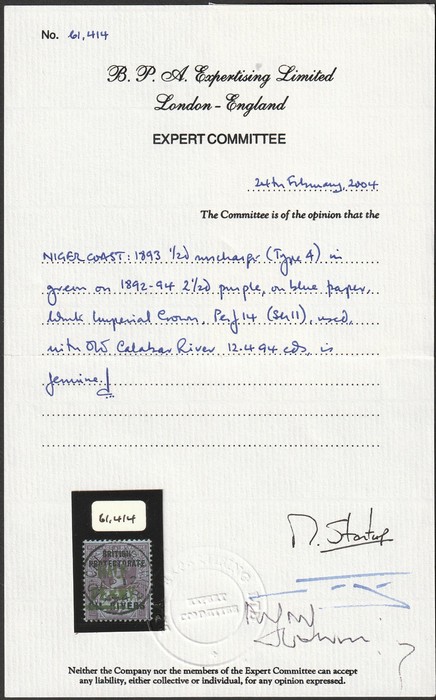 No. 61,414
B. P. A. Expertising Limited
London - England
EXPERT COMMITTEE
24th February, 2004
The Committee is of the opinion that the
NIGER COAST: 1893 1/2d surcharge (Type 4) in
green on 1892-94 2 1/2d purple, on blue paper,
wmk Imperial Crown, Perf 14 (SG 11), used
with Old Calabar River 12.4.94 cds, is
genuine.
61,414
BRITISH
PROTECTORATE
OIL RIVERS
Neither the Company nor the members of the Expert Committee can accept
any liability, either collective or individual, for any opinion expressed.